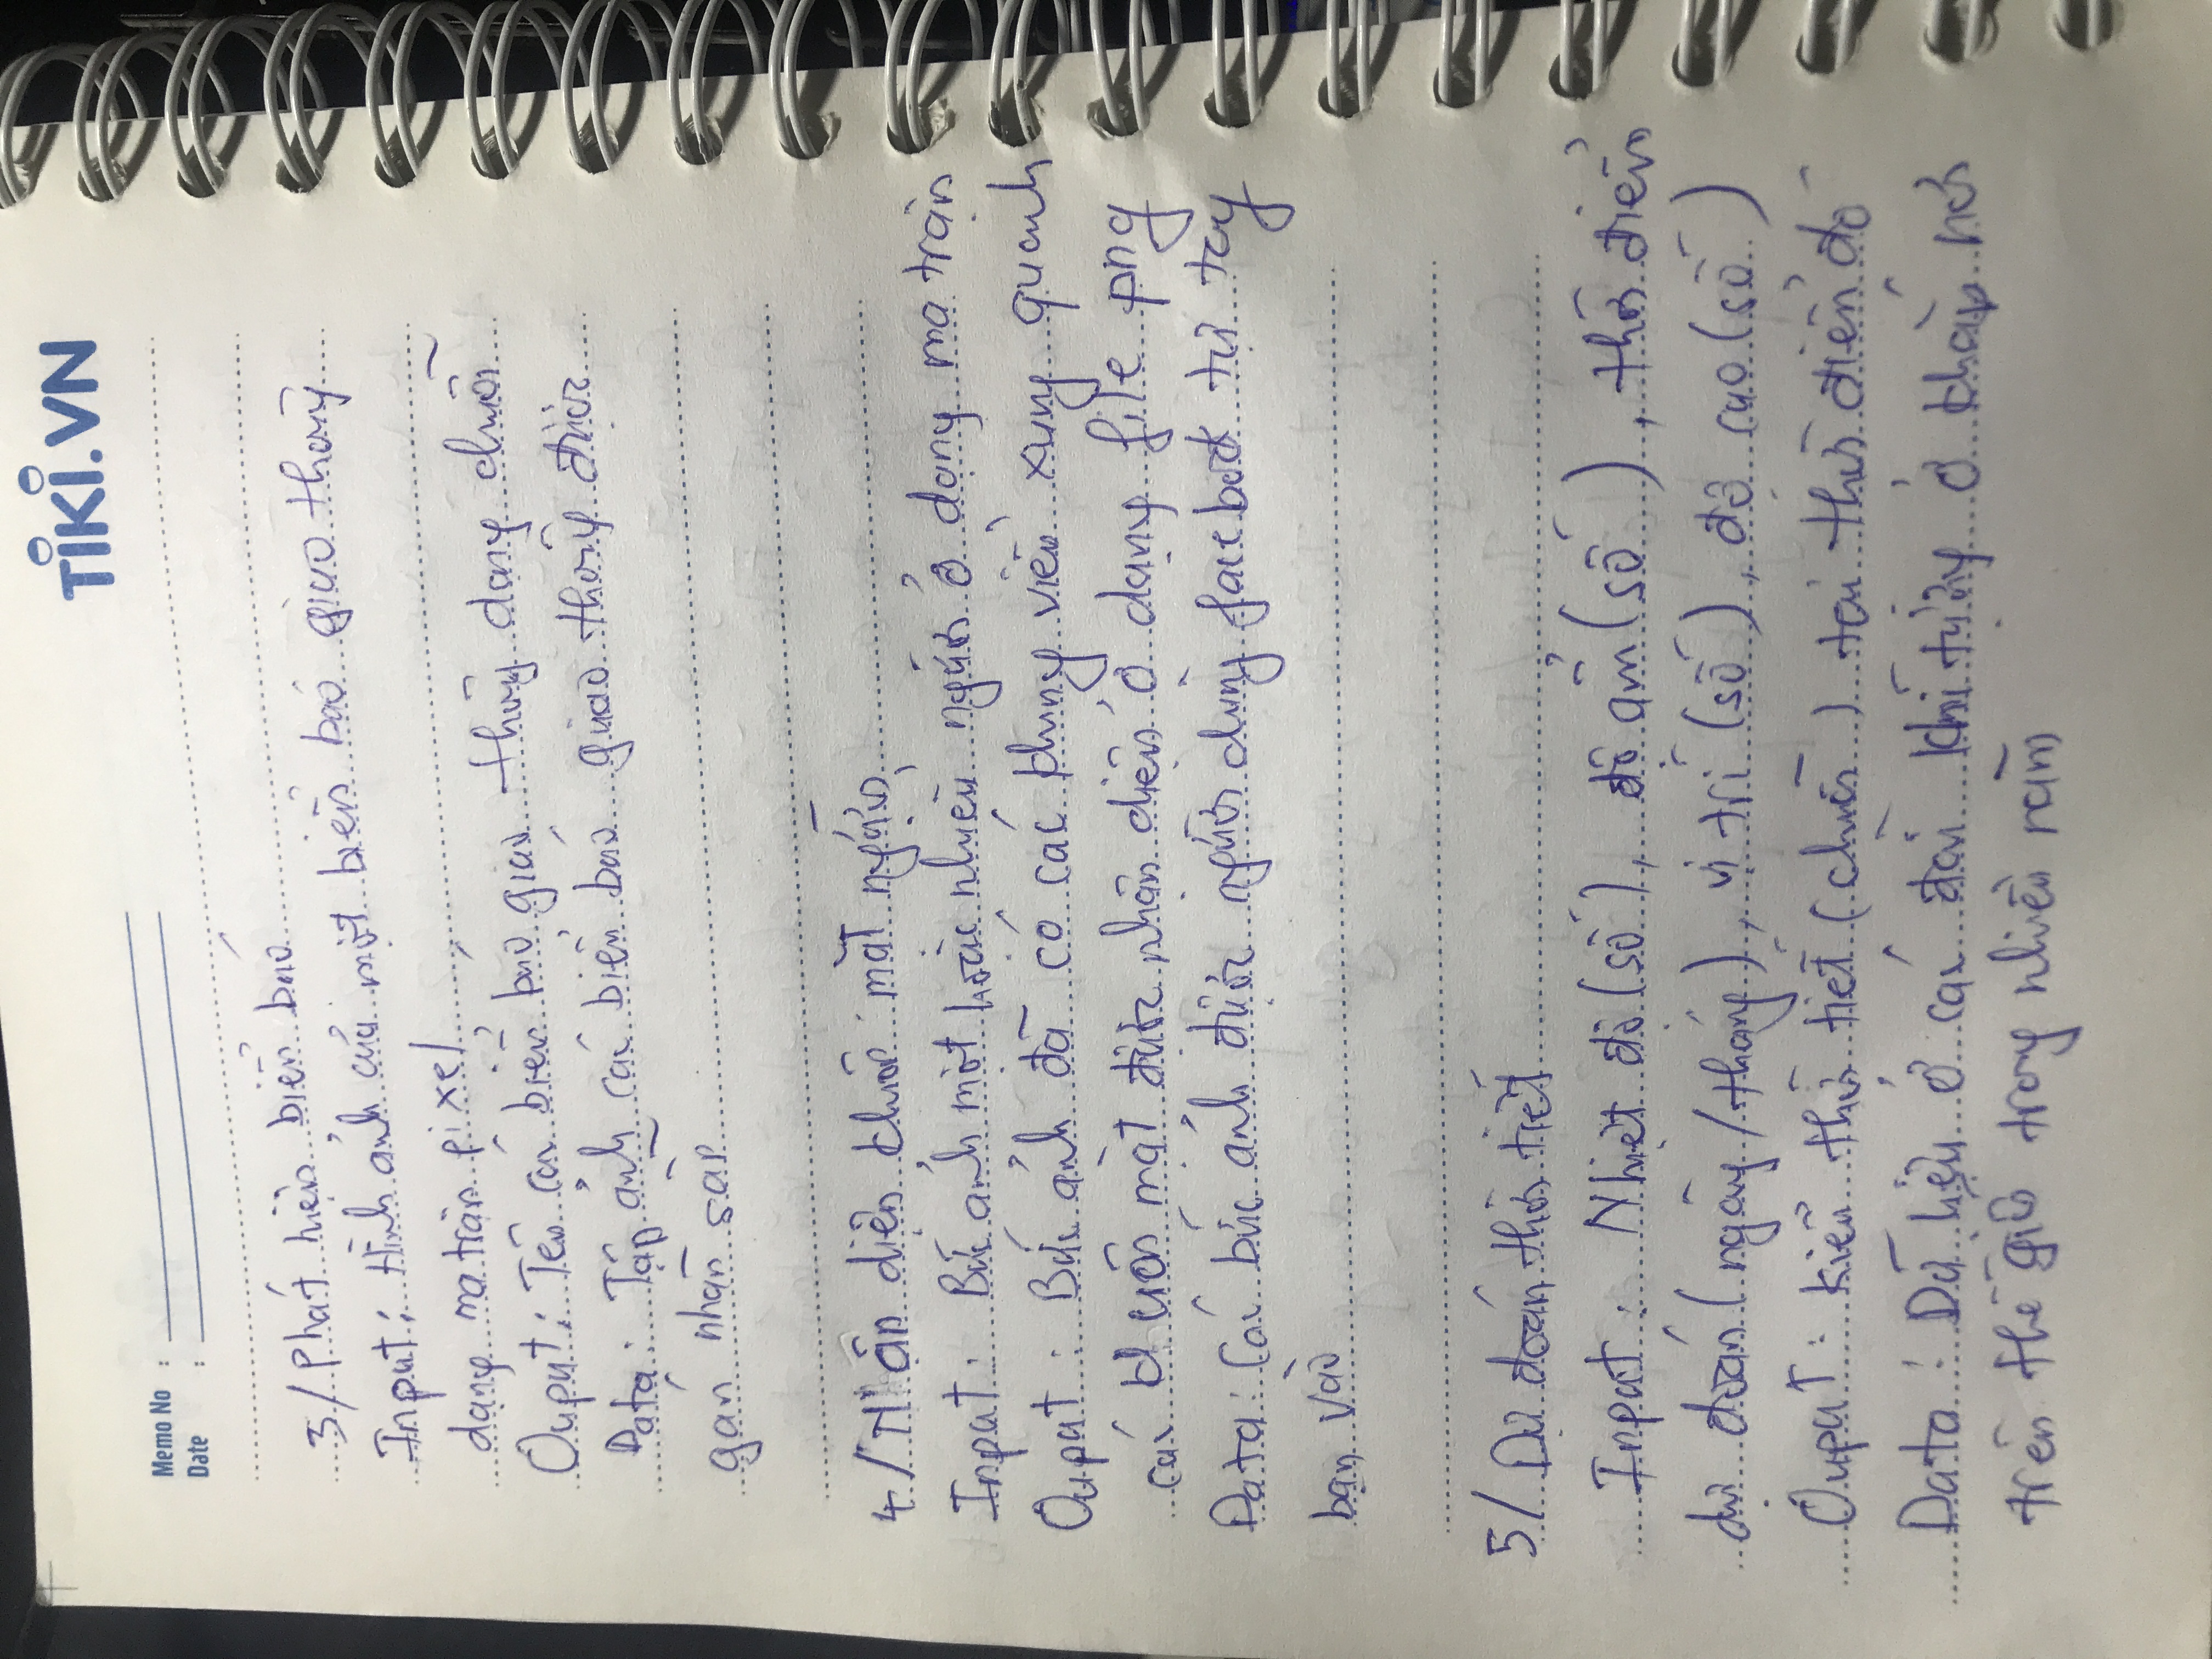 TiKi.VN
Memo No :
Date :
3/ Phát hiện biển báo
Input: Hình ảnh của một biển báo giao thông
dạng ma trận pixel
Ouput: Tên các biển báo giao thông dạng chuỗi
Data: Tập ảnh các biển báo giao thông được
gán nhãn sẵn
4/ Nhận diện khuôn mặt người
Input: Bức ảnh một hoặc nhiều người ở dạng ma trận
Ouput: Bức ảnh đã có các khung viền xung quanh
các khuôn mặt được nhận diện ở dạng file png
Data: Các bức ảnh được người dùng facebook tự tay
bạn vào
5/ Dự đoán thời tiết
Input: Nhiệt độ (số), độ ẩm (số), thời điểm
dự đoán (ngày/tháng), vị trí (số), độ cao (số)
Ouput: kiểu thời tiết (chuỗi) tại thời điểm đó
Data: Dữ liệu ở các đài khí tượng ở khắp nơi
trên thế giới trong nhiều năm